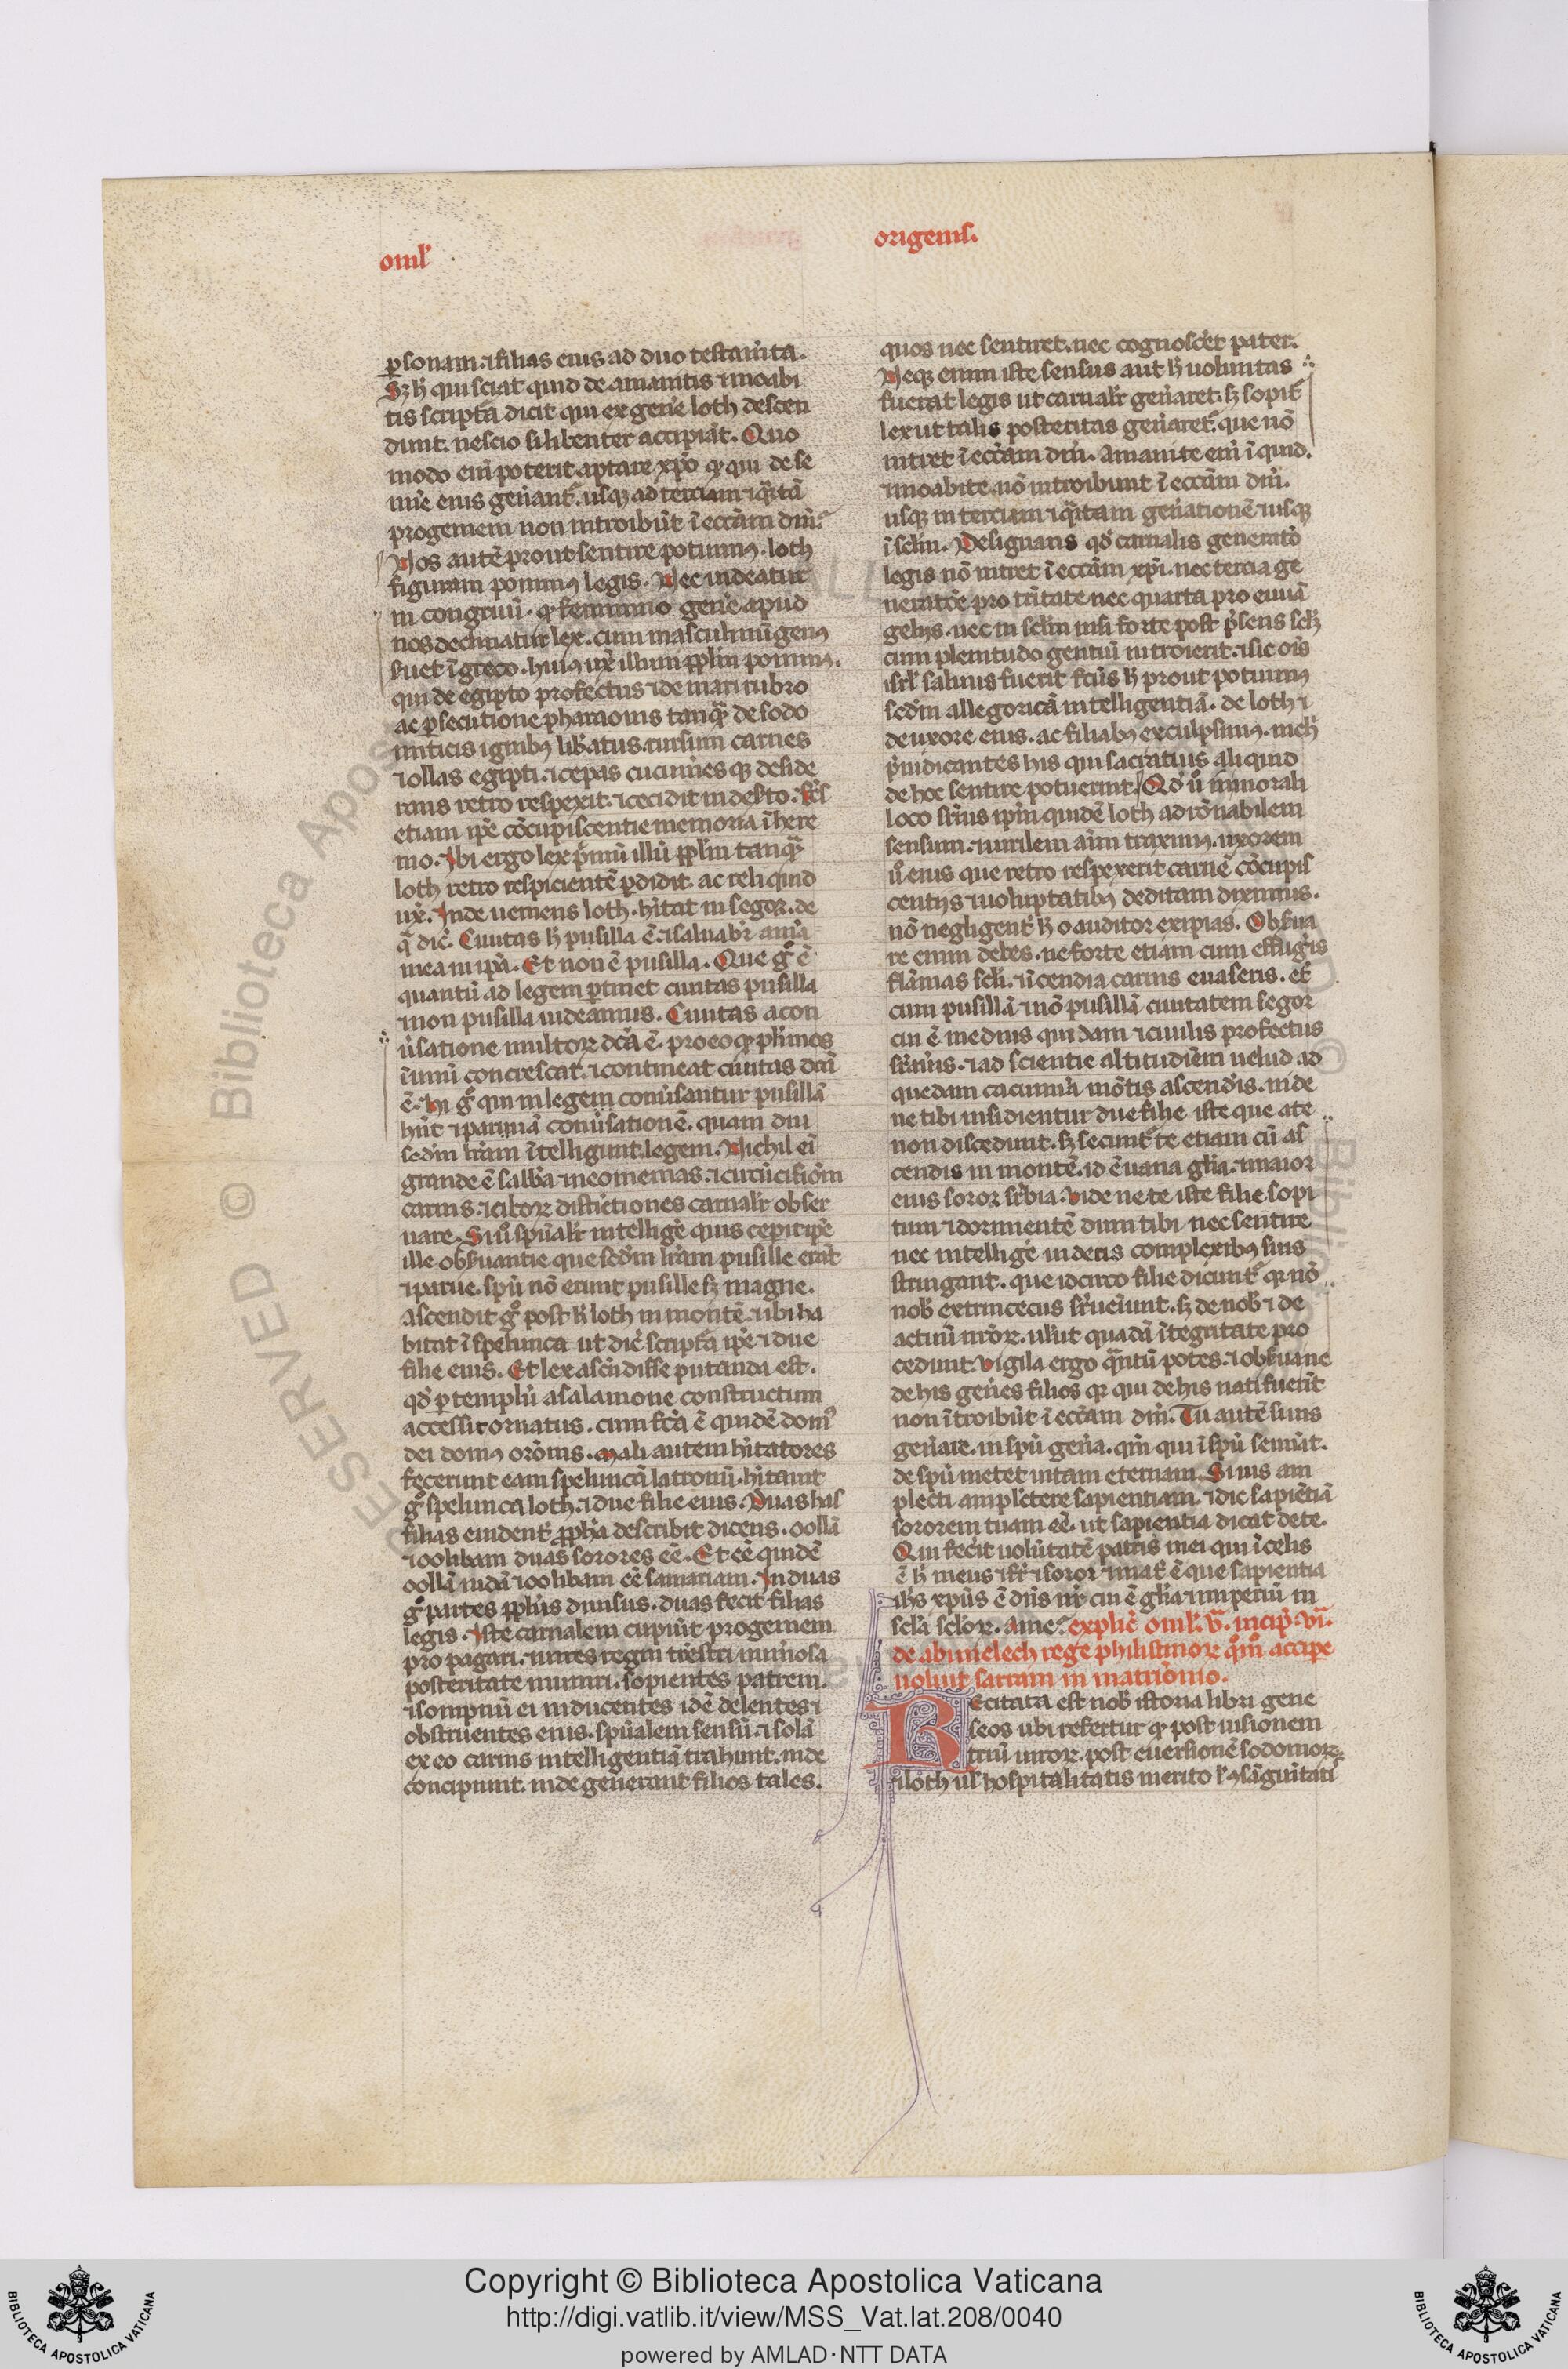 oml̛
origenis.
ꝑsonam. ⁊ filias eius ad duo testam̅ta.
Sꝫ h̛ qui sciat quid de amanitis ⁊ moabi
tis script̅a dicit qui ex gen̅e loth descen
dunt. nescio si libenter accipiāt. Quo
modo eni̅ poterit aptare xp̅o ꝙ qui de se
mi̅e eius gen̅ant̛. usqꝫ ad terciam ⁊ qᷓrtā
progeniem non introibūt ī eccl̅am dn̅i.
Nos autē prout sentire potuimꝰ. loth
figuram ponimꝰ legis. Nec uideatur
in congruū. ꝙ feminino gen̅e apud
nos declinatur lex. cum masculinū genꝰ
s̛uet ī greco. huiꝰ ux̅e illum pp̅lm ponimꝰ.
qui de egipto profectus ⁊ de mari rubro
ac ꝑsecutione pharaonis tanqᷓ de sodo
miticis ignibꝰ lib̛atus. rursum carnes
⁊ ollas egipti. ⁊ cepas cucum̅es qꝫ deside
rans retro respexit. ⁊ cecidit in des̛to. Fc̅s
etiam ip̅e cōcupiscentie memoria ī here
mo. Ibi ergo lex p̛mū illū pp̅lm tanqᷓ
loth retro respicientē ꝑdidit. ac reliquid
ux̅e. Inde ueniens loth. h̅itat in segor. de
qᷓ dic̅. Ciuitas h̛ pusilla ē. ⁊ saluab̛r a̅ia
mea in ip̅a. Et non ē pusilla. Que gͦ ē
quantū ad legem ꝑtinet ciuitas pusilla
⁊ non pusilla uideamus. Ciuitas a con
u̅satione multoꝝ dc̅a ē. pro eo ꝙ pl̛imos
ī unū concrescat. ⁊ contineat ciuitas dc̅a
ē. Hi gͦ qui in legem conu̅santur pusillā
hn̅t ⁊ paruā conu̅sationē. quam diu
sedm̅ lr̅am ītelligunt legem. Nichil ei̅
grande ē sabb̅a ⁊ neomenias. ⁊ circūcisiōm
carnis. ⁊ ciboꝝ distictiones carnalr̛ obser
uare. Si uͦ spūalr̛ intellige̅ quis cepit ip̅e
ille obs̛uantie que scdm̅ lr̅am pusille erāt
⁊ parue. spū nō erunt pusille sꝫ magne.
Ascendit gͦ post h̛ loth in montē. ⁊ ubi ha
bitat ī spelunca ut dic̅ script̅a ip̅e ⁊ due
filie eius. Et lex ascēdisse putanda est.
qd̛ ꝑ templū a salamone constructum
accessit ornatus. cum fc̅a ē quidē domꝰ
dei domꝰ orōnis. Mali autem h̅itatores
fecerunt eam speluncā latronū. h̅itauit
gͦ spelunca loth. ⁊ due filie eius. Duas has
filias euident̛ ꝓph̅a describit dicens. oollā
⁊ oolibam duas sorores eē. Et eē quidē
oollā iudā ⁊ oolibam eē samariam. In duas
gͦ partes pp̅lus diuisus. duas fecit filias
legis. Iste carnalem cupiūt progeniem
pro pagari. ⁊ uires regni tr̅estri nu̅osa
posteritate muniri. sopientes patrem.
⁊ sompnū ei inducentes idē delentes ⁊
obstruentes eius. spūalem sensū. ⁊ solā
ex eo carnis intelligentiā trahunt. inde
concipiunt. inde generant filios tales.
quos nec sentiret. nec cognoscet̛ pater.
Neqꝫ enim iste sensus aut h̛ uoluntas
fuerat legis ut carnalr̛ gen̅aret. sꝫ sopit̛
lex ut talis posteritas gen̅aret̛. que nō
intret ī eccl̅am dn̅i. Amanite eni̅ ī quid.
⁊ moabite. nō introibunt ī eccl̅am dn̅i.
usqꝫ in terciam ⁊ qᷓrtam gen̅ationē ⁊ usqꝫ
ī sclm̅. Designans qd̛ carnalis generatō
legis nō intret ī eccl̅am xp̅i. nec tercia ge
neratōe pro t̛nitate nec quarta pro euuā
gelijs. nec in sclm̅ nisi forte post p̛sens sclꝫ
cum plenitudo gentiū introierit. ⁊ sic om̅s
isrl̛ saluus fuerit fc̅us h̛ prout potuimꝰ
sedm̅ allegoricā intelligentiā. de loth ⁊
de uxore eius. ac filiabꝰ exculpsimꝰ. nich̛
p̛iudicantes his qui sacratius aliquid
de hoc sentire potuerint. Qd̛ uͦ in morali
loco st̅ius ip̅m quidē loth ad rōnabilem
sensum. ⁊ uirilem a̅im traximꝰ. uxorem
uͦ eius que retro respexerit carnē cōcupis
centijs ⁊ uoluptatibꝰ deditam diximus.
nō negligent̛ h̛ o auditor excipias. Obs̛ua
re enim debes. ne forte etiam cum effugis
flāmas scli̛. ⁊ īcendia carnis euaseris. et̛
cum pusillā ⁊ nō pusillā ciuitatem segor
cui ē medius quidam ⁊ ciuilis profectus
st̅n̅is. ⁊ ad scientie altitudīem uelud ad
quedam cacumīa mōtis ascendis. inde
ne tibi insidientur due filie iste que a te
non discedunt. sꝫ secunt̛ te etiam cū as
cendis in montē. id ē uana gl̛ia. ⁊ maior
eius soror sr̅bia. Uide ne te iste filie sopi
tum ⁊ dormientē dum tibi nec sentire
nec intellige̅ uideris complexibꝰ suis
stringant. que idcirco filie dicunt̛ qꝛ nō
nob̛ extrincecus st̅ueiunt. sꝫ de nob̛ ⁊ de
actuū nr̅oꝝ. uel̛ut quadā ītegritate pro
cedunt. Uigila ergo qᷓntū potes. ⁊ obs̛ua ne
de his gen̅es filios qꝛ qui de his nati fuerīt
non ītroibūt ī eccl̅am dn̅i. Tu autē si uis
gen̅are. in spū gen̅a. qm̅ qui ī spū semi̅at.
de spū metet uitam eternam. Si uis am
plecti ampl̛ctere sapientiam. ⁊ dic sapiētiā
sororem tuam eē. ut sapientia dicat de te.
Qui fecit uolūtatē patris mei qui ī celis
ē h̛ meus ⁊ fr̛ ⁊ soror ⁊ mat̛ ē que sapientia
ih̅s xp̅us ē dn̅s nr̅ cui ē gl̛ia ⁊ imperiū in
scl̅a scl̅oꝝ. ame̅. explic̅ oml̛. v̅. incip̛. vi̅.
de abimelech rege philistinoꝝ qͦm̅ accipe
uoluit̛ sarram in matr̛monio.
Recitata est nob̛ istoria libri gene
seos ubi refertur ꝙ post uisionem
triū uiroꝝ. post euersionē sodomoꝝ.
⁊ loth ul̛ hospitalitatis merito l̛ ꝯsāguitati
Copyright © Biblioteca Apostolica Vaticana
http://digi.vatlib.it/view/MSS_Vat.lat.208/0040
powered by AMLAD·NTT DATA
BIBLIOTECA APOSTOLICA VATICANA
BIBLIOTECA APOSTOLICA VATICANA